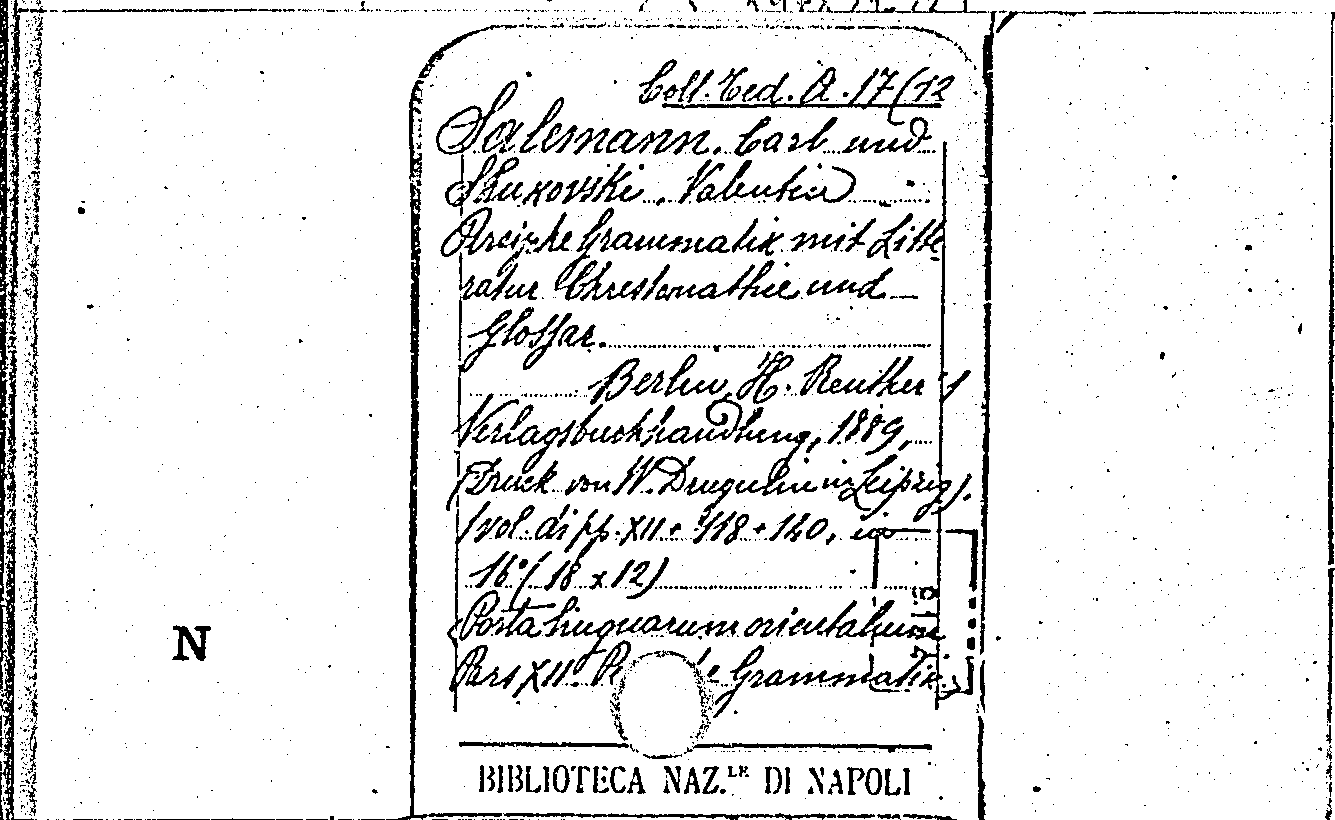 Coll. Ted. A. 17 (12
Salemann. Carl und
Shukovski, Valentin
Persische Grammatik mit Litte
ratur Chrestomathie und
Glossar.
Berlin, H. Reuther's
Verlagsbuchhandlung, 1889,
(Druck von W. Drugulin in Leipzig).
1 vol. di pp. XII + 118 + 140, in
16° (18 x 12)
(Porta linguarum orientalium
Pars XII. Grammatik.)
N
BIBLIOTECA NAZ.LE DI NAPOLI